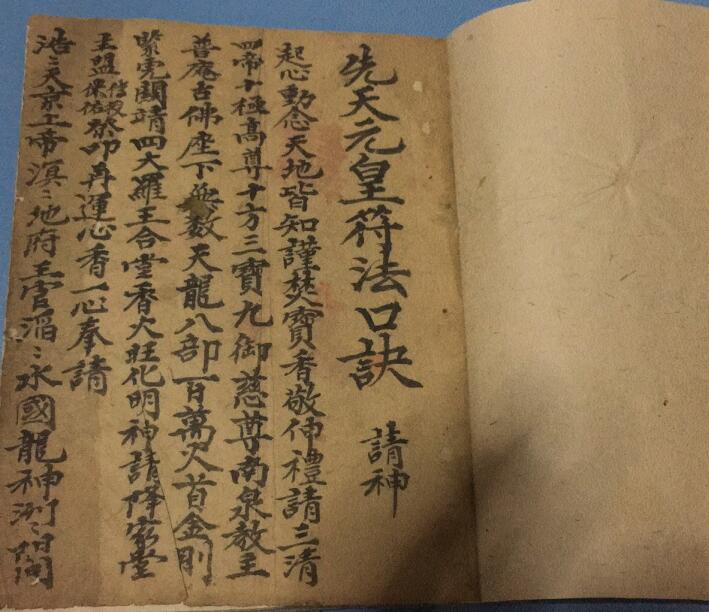 先天元皇符法口訣
請神
起心動念天地皆知謹焚寶香敬伸禮請三清
四帝十極高尊十方三寶九御慈尊南泉教主
普庵古佛座下無数天龍八部一百萬火首金剛
緊 関靖四大羅王合堂香火旺化明神請降家堂
主盟 保佑 叩再運心香一心奉請
浩〻天京上帝溟〻地府王官滔〻水國龍神